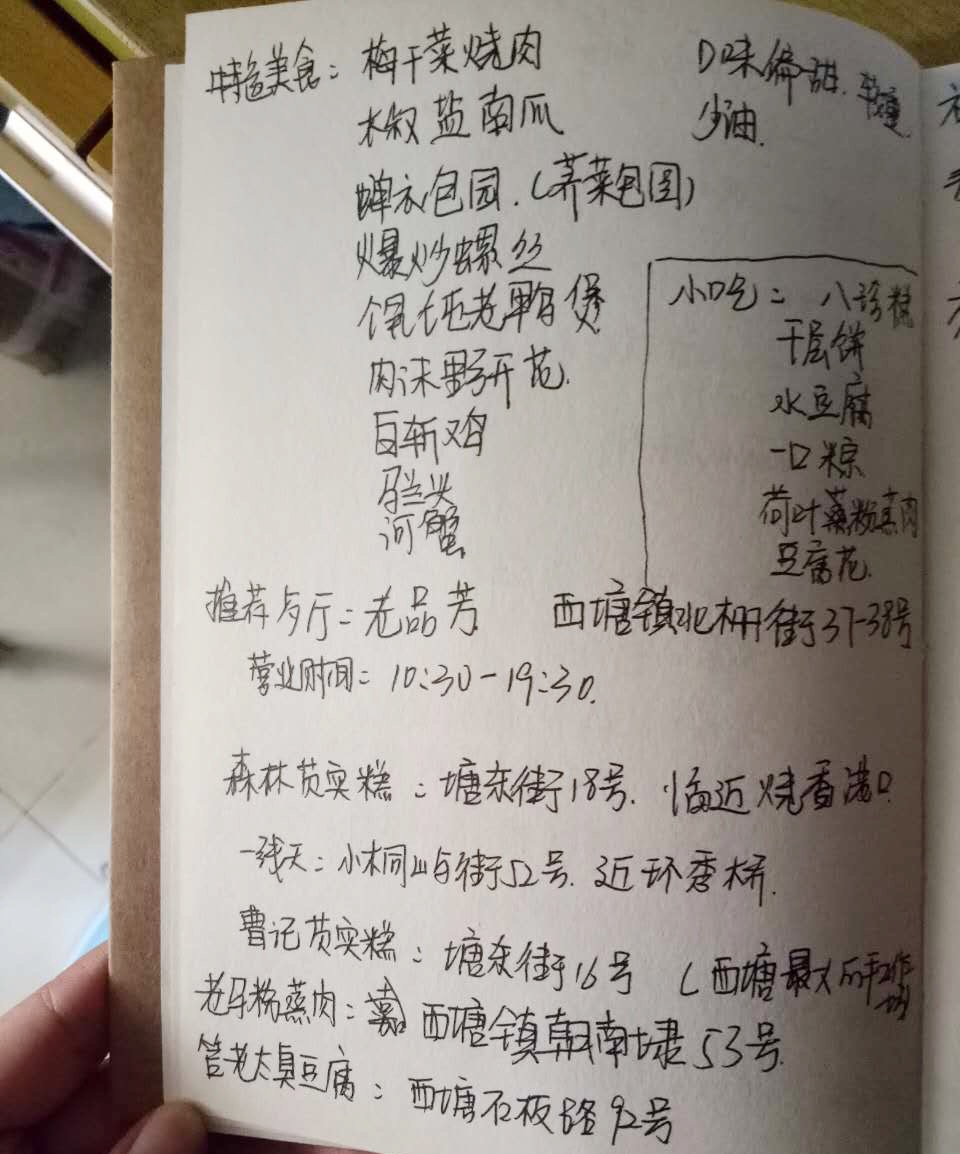 特色美食：梅干菜烧肉 口味偏甜.
椒盐南瓜 少油.
蝉衣包园.（荠菜包园）
爆炒螺丝
馄饨老鸭煲
肉沫野开花.
白斩鸡
马兰头
河蟹
小吃：八珍糕
千层饼
水豆腐
一口粽
荷叶蒸粉蒸肉
豆腐花.
推荐歺厅：老品芳 西塘镇北栅街37-38号
营业时间：10:30-19:30.
森林芡实糕：塘东街18号. 临近烧香港口.
一线天：小桐屿街52号. 近环秀桥.
曹记芡实糕：塘东街16号（西塘最大的手工作坊
老马粉蒸肉：西塘镇朝南埭53号.
管老太臭豆腐：西塘石板路92号